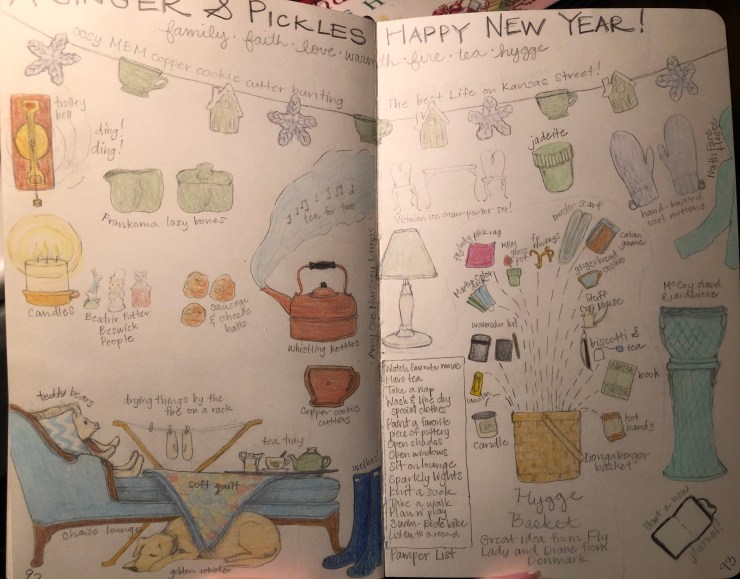 GINGER & PICKLES
family · faith · love · warm
cosy MEM copper cookie cutter bunting
trolley
bell
ding!
ding!
Frankoma lazy bones
♪ tea for two
candles
Beatrix Potter
Beswick
People
sausage
& cheese
balls
whistling kettles
Copper cookie
cutters
teddy bears
drying things by the
fire on a rack
tea tray
soft quilt
chaise lounge
golden retriever
wellies
92
HAPPY NEW YEAR!
th · fire · tea · hygge
The best Life on Kansas Street!
jadeite
Victorian ice cream parlor set!
hand-knitted
wool mittens
Any One Nursery Lamps
fly lady pick rag
MEM
glass
pot
muslin scarf
catan
game
gingerbread
cookie
Steiff
Mouse
watercolor kit
biscotti &
tea
book
candle
hot
hands
Longaberger
basket
McCoy
& jardiniere
Watch favorite movie
Have tea
Take a nap
Wash & line dry
special clothes
Paint a favorite
piece of pottery
Open shades
Open windows
Sit on lounge
Sparkly lights
Knit a sock
Take a walk
Plan n' play
Swim - Ride bike
Listen to a read
Pamper List
Hygge
Basket
Great idea from Fly
Lady and Diane from
Denmark
Start a new
journal!
93